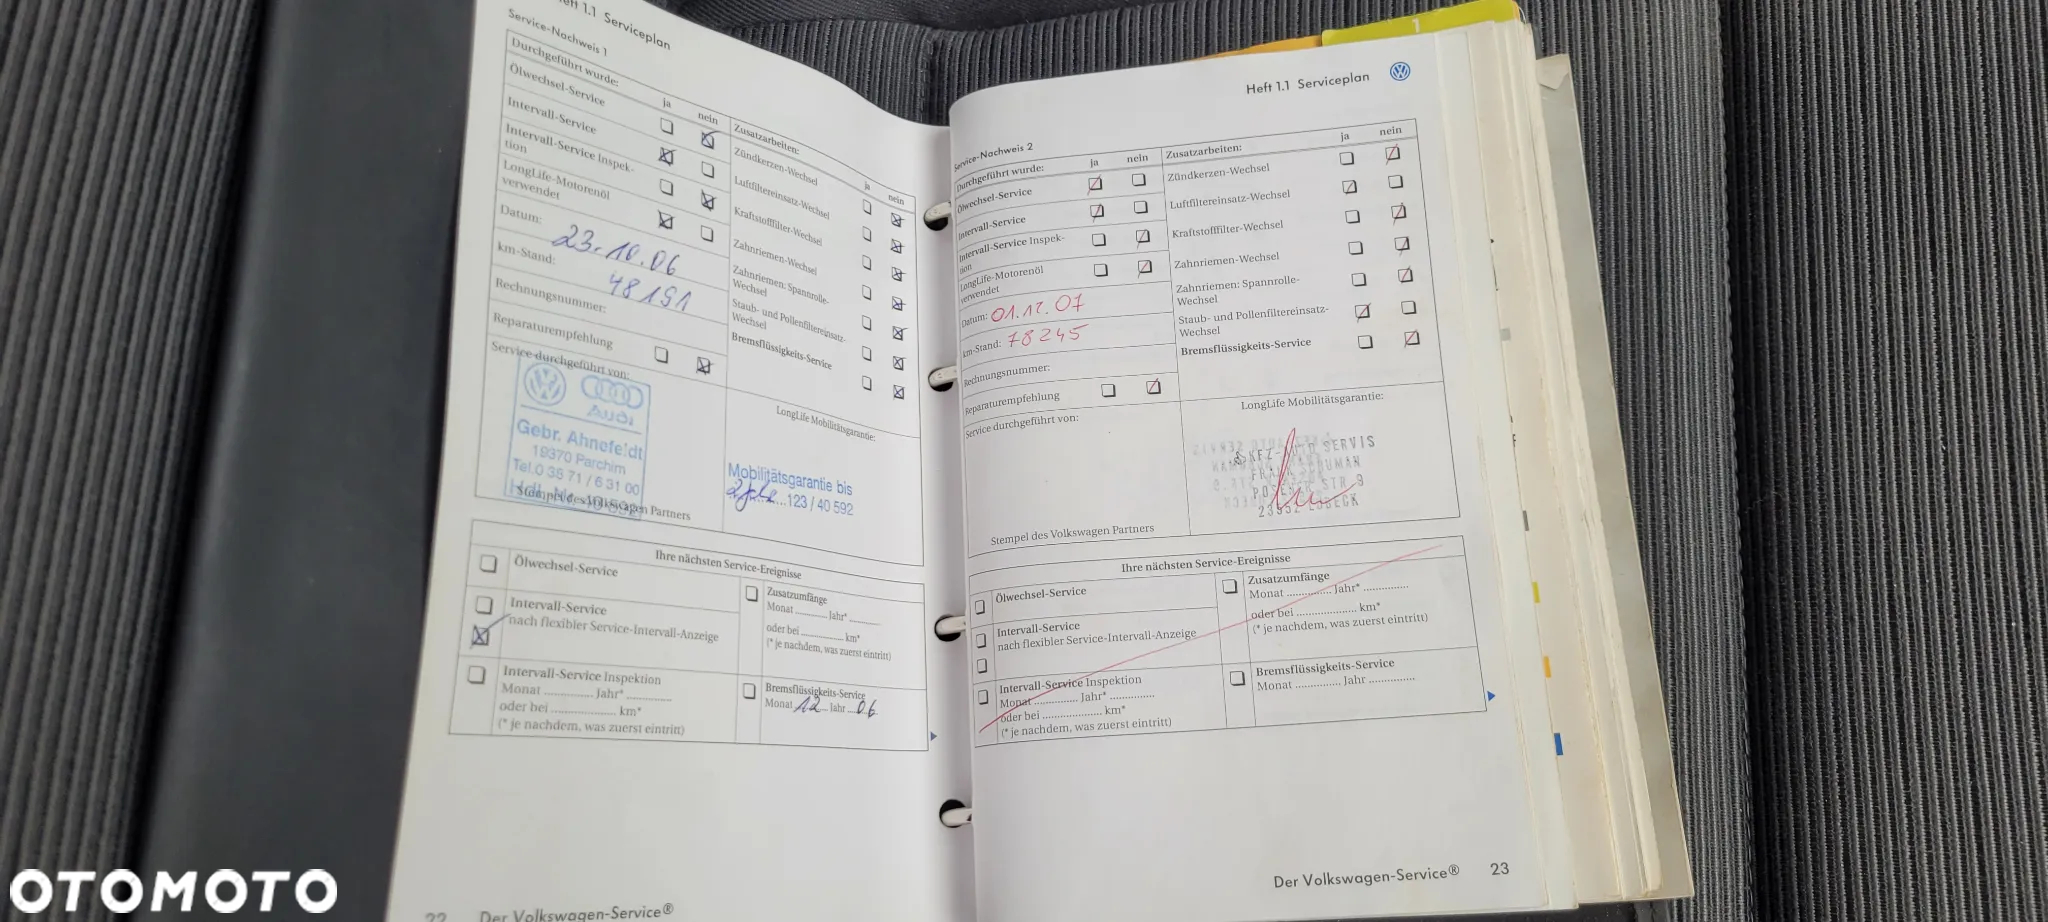 Heft 1.1 Serviceplan
Service-Nachweis 1
Durchgeführt wurde:
ja
nein
Ölwechsel-Service
Intervall-Service
Intervall-Service Inspek-
tion
LongLife-Motorenöl
verwendet
Datum: 23.10.06
km-Stand: 48191
Rechnungsnummer:
Reparaturempfehlung
Service durchgeführt von:
Audi
Gebr. Ahnefeldt
19370 Parchim
Tel. 0 38 71 / 6 31 00
Stempel des Volkswagen Partners
Zusatzarbeiten:
ja
nein
Zündkerzen-Wechsel
Luftfiltereinsatz-Wechsel
Kraftstofffilter-Wechsel
Zahnriemen-Wechsel
Zahnriemen: Spannrolle-
Wechsel
Staub- und Pollenfiltereinsatz-
Wechsel
Bremsflüssigkeits-Service
LongLife Mobilitätsgarantie:
Mobilitätsgarantie bis
...123 / 40 592
Ihre nächsten Service-Ereignisse
Ölwechsel-Service
Intervall-Service
nach flexibler Service-Intervall-Anzeige
Intervall-Service Inspektion
Monat .............. Jahr* .............
oder bei .................... km*
(* je nachdem, was zuerst eintritt)
Zusatzumfänge
Monat .......... Jahr* ..........
oder bei .............. km*
(* je nachdem, was zuerst eintritt)
Bremsflüssigkeits-Service
Monat 12 Jahr 06
22 Der Volkswagen-Service®
1
Heft 1.1 Serviceplan
Service-Nachweis 2
Durchgeführt wurde:
ja
nein
Ölwechsel-Service
Intervall-Service
Intervall-Service Inspek-
tion
LongLife-Motorenöl
verwendet
Datum: 01.12.07
km-Stand: 78245
Rechnungsnummer:
Reparaturempfehlung
Service durchgeführt von:
Stempel des Volkswagen Partners
Zusatzarbeiten:
ja
nein
Zündkerzen-Wechsel
Luftfiltereinsatz-Wechsel
Kraftstofffilter-Wechsel
Zahnriemen-Wechsel
Zahnriemen: Spannrolle-
Wechsel
Staub- und Pollenfiltereinsatz-
Wechsel
Bremsflüssigkeits-Service
LongLife Mobilitätsgarantie:
KFZ-AUTO SERVIS
STR 9
Ihre nächsten Service-Ereignisse
Ölwechsel-Service
Intervall-Service
nach flexibler Service-Intervall-Anzeige
Intervall-Service Inspektion
Monat .............. Jahr* .............
oder bei .................... km*
(* je nachdem, was zuerst eintritt)
Zusatzumfänge
Monat .............. Jahr* .............
oder bei .................... km*
(* je nachdem, was zuerst eintritt)
Bremsflüssigkeits-Service
Monat .............. Jahr .............
Der Volkswagen-Service® 23
OTOMOTO